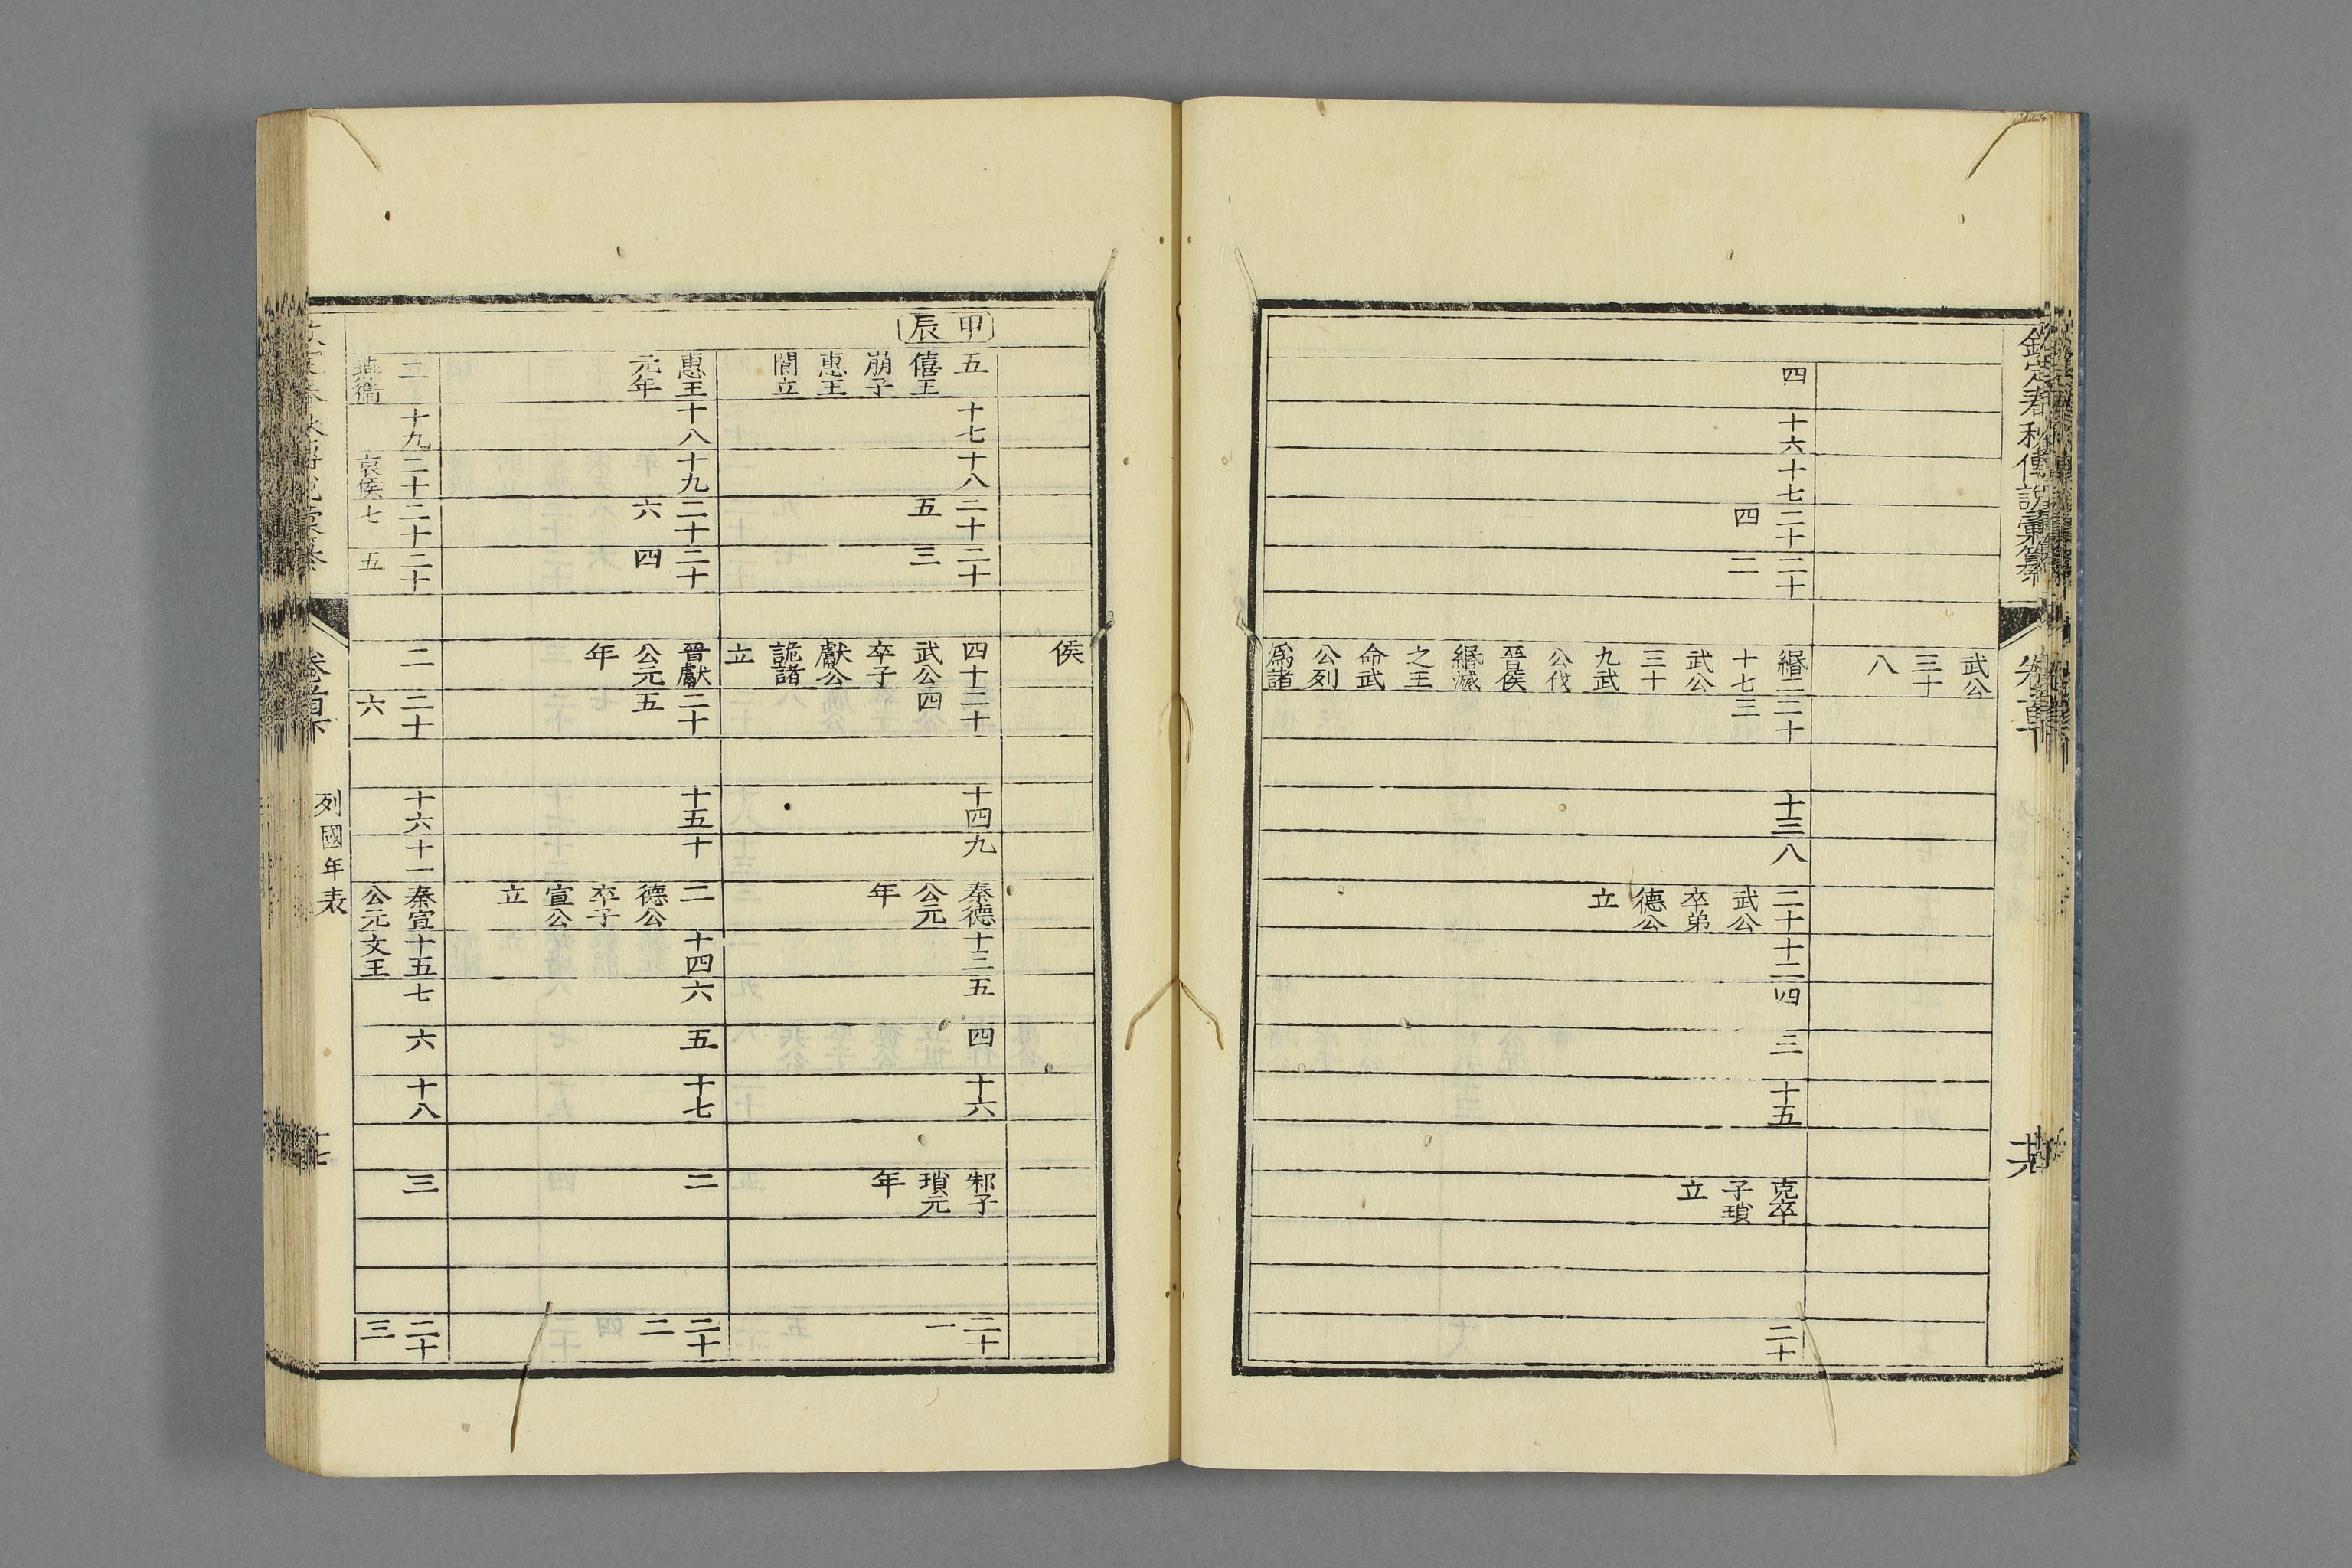 欽定春秋傳說彙纂
卷首下
武公
三十
八
四
十六
十七
二十
四
二十
二
緡二
十七
武公
三十
九武
公伐
晉侯
緡滅
之王
命武
公列
爲諸
二十
三
十三
八
二十
武公
卒弟
德公
立
十二
四
三
十五
克卒
子瑣
立
二十
侯
甲辰
五
僖王
崩子
惠王
閬立
十七
十八
二十
五
二十
三
四十
武公
卒子
獻公
詭諸
立
二十
四
十四
九
秦德
公元
年
十三
五
四
十六
邾子
瑣元
年
二十
一
惠王
元年
十八
十九
二十
六
二十
四
晉獻
公元
年
二十
五
十五
十
二
德公
卒子
宣公
立
十四
六
五
十七
二
二十
二
二
燕衞
十九
二十
哀侯
二十
七
二十
五
二
二十
六
十六
十一
秦宣
公元
十五
文王
七
六
十八
三
二十
三
卷首下
列國年表